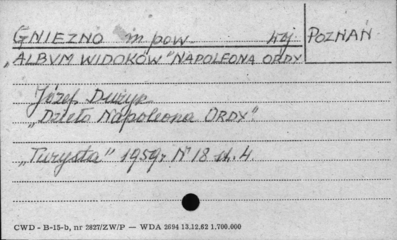 GNIEZNO m pow. POZNAŃ
"ALBUM WIDOKÓW" NAPOLEONA ORDY
Józef
"Dzieło Napoleona ORDY".
"Turysta" 1959r N° 18 4.
CWD - B-15-b, nr 2827/ZW/P — WDA 2694 13.12.62 1.700.000